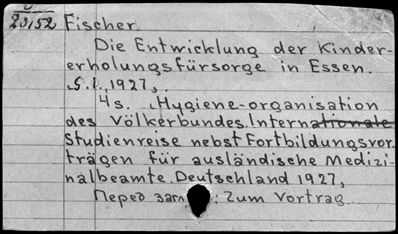 23,52 Fischer.
Die Entwicklung der Kinder-
erholungsfürsorge in Essen.
S.l., 1927,
4 s. (Hygiene-organisation
des Völkerbundes. Internationale
Studienreise nebst Fortbildungsvor-
trägen für ausländische Medizi-
nalbeamte. Deutschland 1927,
Перед загл.: Zum Vortrag